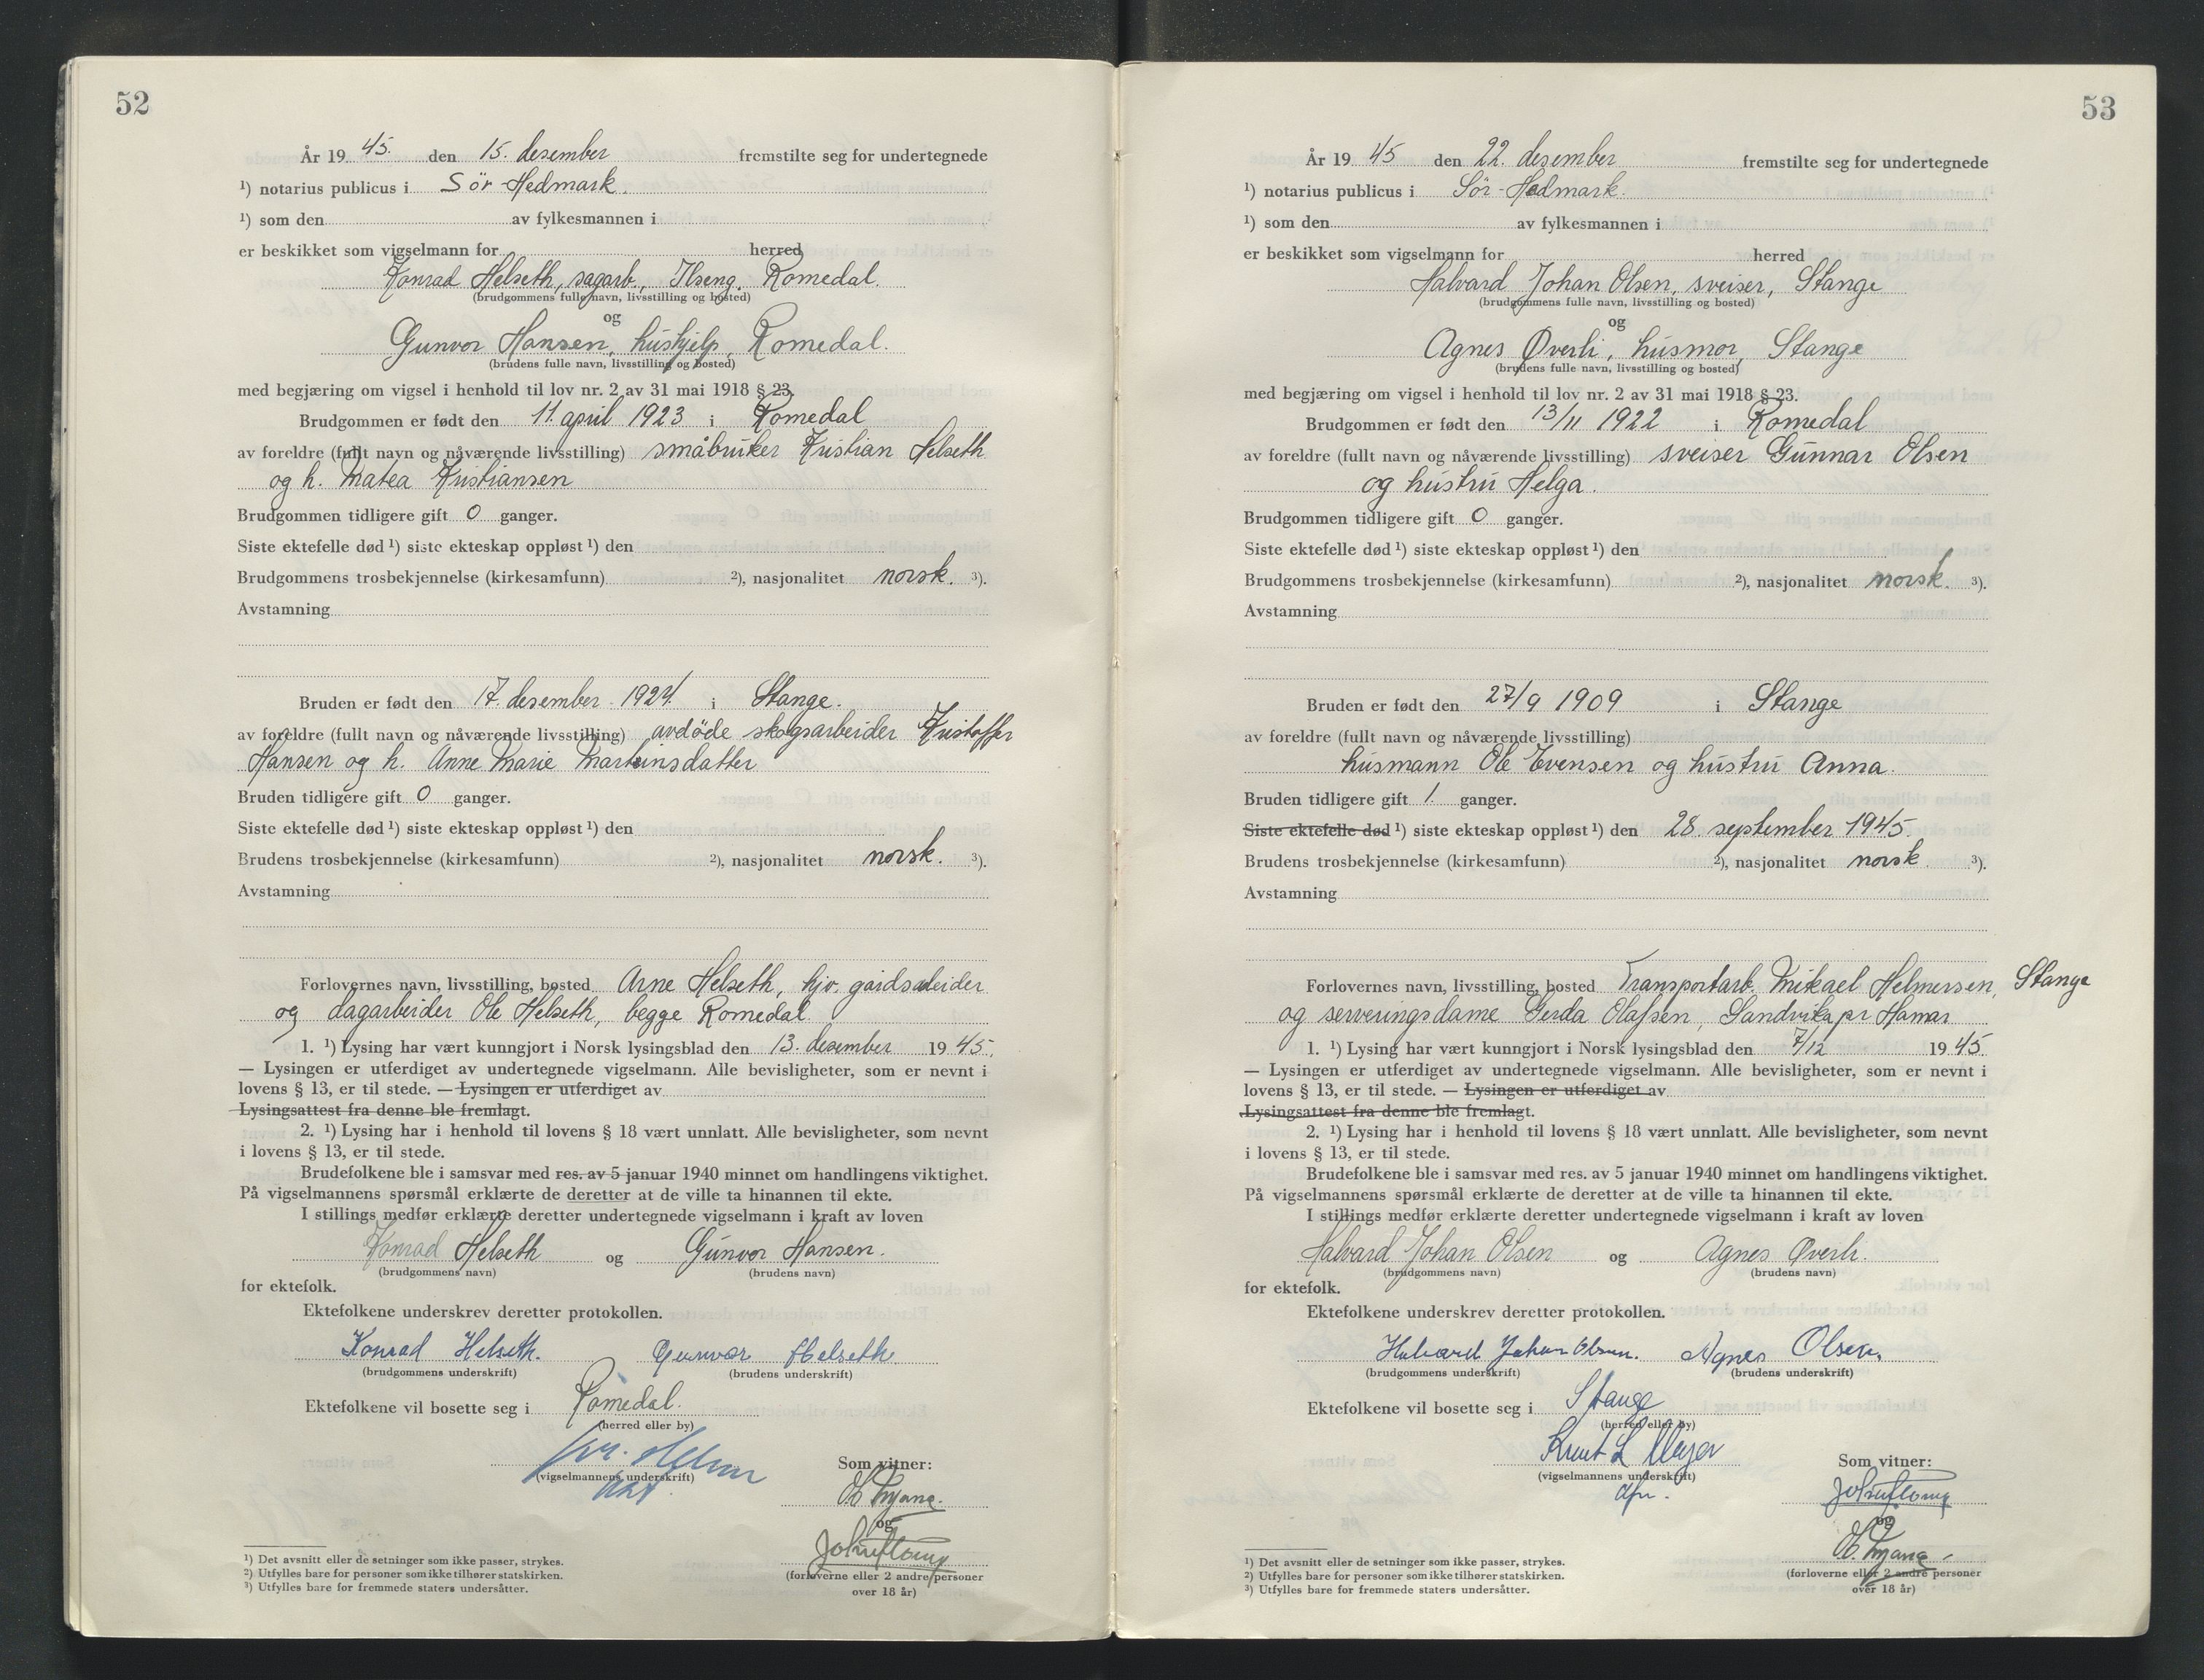 52
År 19 45. den 15. desember fremstilte seg for undertegnede
¹) notarius publicus i Sör-Hedmark.
¹) som den av fylkesmannen i
er beskikket som vigselmann for herred
Konrad Helseth, sagarb., Ilseng, Romedal.
(brudgommens fulle navn, livsstilling og bosted)
og
Gunvor Hansen, hushjelp, Romedal.
(brudens fulle navn, livsstilling og bosted)
med begjæring om vigsel i henhold til lov nr. 2 av 31 mai 1918 § 23.
Brudgommen er født den 11. april 1923 i Romedal
av foreldre (fullt navn og nåværende livsstilling) småbruker Kristian Helseth
og h. Matea Kristiansen
Brudgommen tidligere gift 0 ganger.
Siste ektefelle død ¹) siste ekteskap oppløst ¹) den
Brudgommens trosbekjennelse (kirkesamfunn) ²), nasjonalitet norsk. ³).
Avstamning
Bruden er født den 17. desember 1924. i Stange.
av foreldre (fullt navn og nåværende livsstilling) avdöde skogsarbeider Kristoffer
Hansen og h. Anne Marie Martinsdatter
Bruden tidligere gift 0 ganger.
Siste ektefelle død ¹) siste ekteskap oppløst ¹) den
Brudens trosbekjennelse (kirkesamfunn) ²), nasjonalitet norsk. ³).
Avstamning
Forlovernes navn, livsstilling, bosted Arne Helseth, hjv. gårdsarbeider
og dagarbeider Ole Helseth, begge Romedal
1. ¹) Lysing har vært kunngjort i Norsk lysingsblad den 13. desember 19 45.
— Lysingen er utferdiget av undertegnede vigselmann. Alle bevisligheter, som er nevnt i
lovens § 13, er til stede. — Lysingen er utferdiget av
Lysingsattest fra denne ble fremlagt.
2. ¹) Lysing har i henhold til lovens § 18 vært unnlatt. Alle bevisligheter, som nevnt
i lovens § 13, er til stede.
Brudefolkene ble i samsvar med res. av 5 januar 1940 minnet om handlingens viktighet.
På vigselmannens spørsmål erklærte de deretter at de ville ta hinannen til ekte.
I stillings medfør erklærte deretter undertegnede vigselmann i kraft av loven
Konrad Helseth og Gunvor Hansen.
(brudgommens navn) (brudens navn)
for ektefolk.
Ektefolkene underskrev deretter protokollen.
Konrad Helseth. Gunvor Helseth.
(brudgommens underskrift) (brudens underskrift)
Ektefolkene vil bosette seg i Romedal.
(herred eller by)
(vigselmannens underskrift)
Som vitner:
og
(forloverne eller 2 andre personer
over 18 år)
¹) Det avsnitt eller de setninger som ikke passer, strykes.
²) Utfylles bare for personer som ikke tilhører statskirken.
³) Utfylles bare for fremmede staters undersåtter.
53
År 19 45 den 22. desember fremstilte seg for undertegnede
¹) notarius publicus i Sör-Hedmark.
¹) som den av fylkesmannen i
er beskikket som vigselmann for herred
Halvard Johan Olsen, sveiser, Stange
(brudgommens fulle navn, livsstilling og bosted)
og
Agnes Øverli, husmor, Stange
(brudens fulle navn, livsstilling og bosted)
med begjæring om vigsel i henhold til lov nr. 2 av 31 mai 1918 § 23.
Brudgommen er født den 13/11 1922 i Romedal
av foreldre (fullt navn og nåværende livsstilling) sveiser Gunnar Olsen
og hustru Helga.
Brudgommen tidligere gift 0 ganger.
Siste ektefelle død ¹) siste ekteskap oppløst ¹) den
Brudgommens trosbekjennelse (kirkesamfunn) ²), nasjonalitet norsk. ³).
Avstamning
Bruden er født den 27/9 1909 i Stange
av foreldre (fullt navn og nåværende livsstilling)
husmann Ole Evensen og hustru Anna.
Bruden tidligere gift 1. ganger.
Siste ektefelle død ¹) siste ekteskap oppløst ¹) den 28. september 1945.
Brudens trosbekjennelse (kirkesamfunn) ²), nasjonalitet norsk ³).
Avstamning
Forlovernes navn, livsstilling, bosted Transportarb. Mikael Helmersen, Stange
og serveringsdame Gerda Olafsen, Sandvika pr Hamar
1. ¹) Lysing har vært kunngjort i Norsk lysingsblad den 7/12 19 45.
— Lysingen er utferdiget av undertegnede vigselmann. Alle bevisligheter, som er nevnt i
lovens § 13, er til stede. — Lysingen er utferdiget av
Lysingsattest fra denne ble fremlagt.
2. ¹) Lysing har i henhold til lovens § 18 vært unnlatt. Alle bevisligheter, som nevnt
i lovens § 13, er til stede.
Brudefolkene ble i samsvar med res. av 5 januar 1940 minnet om handlingens viktighet.
På vigselmannens spørsmål erklærte de deretter at de ville ta hinannen til ekte.
I stillings medfør erklærte deretter undertegnede vigselmann i kraft av loven
Halvard Johan Olsen og Agnes Øverli.
(brudgommens navn) (brudens navn)
for ektefolk.
Ektefolkene underskrev deretter protokollen.
Halvard Johan Olsen. Agnes Olsen.
(brudgommens underskrift) (brudens underskrift)
Ektefolkene vil bosette seg i Stange
(herred eller by)
Knut L Meyer
(vigselmannens underskrift)
dfm.
Som vitner:
og
(forloverne eller 2 andre personer
over 18 år)
¹) Det avsnitt eller de setninger som ikke passer, strykes.
²) Utfylles bare for personer som ikke tilhører statskirken.
³) Utfylles bare for fremmede staters undersåtter.